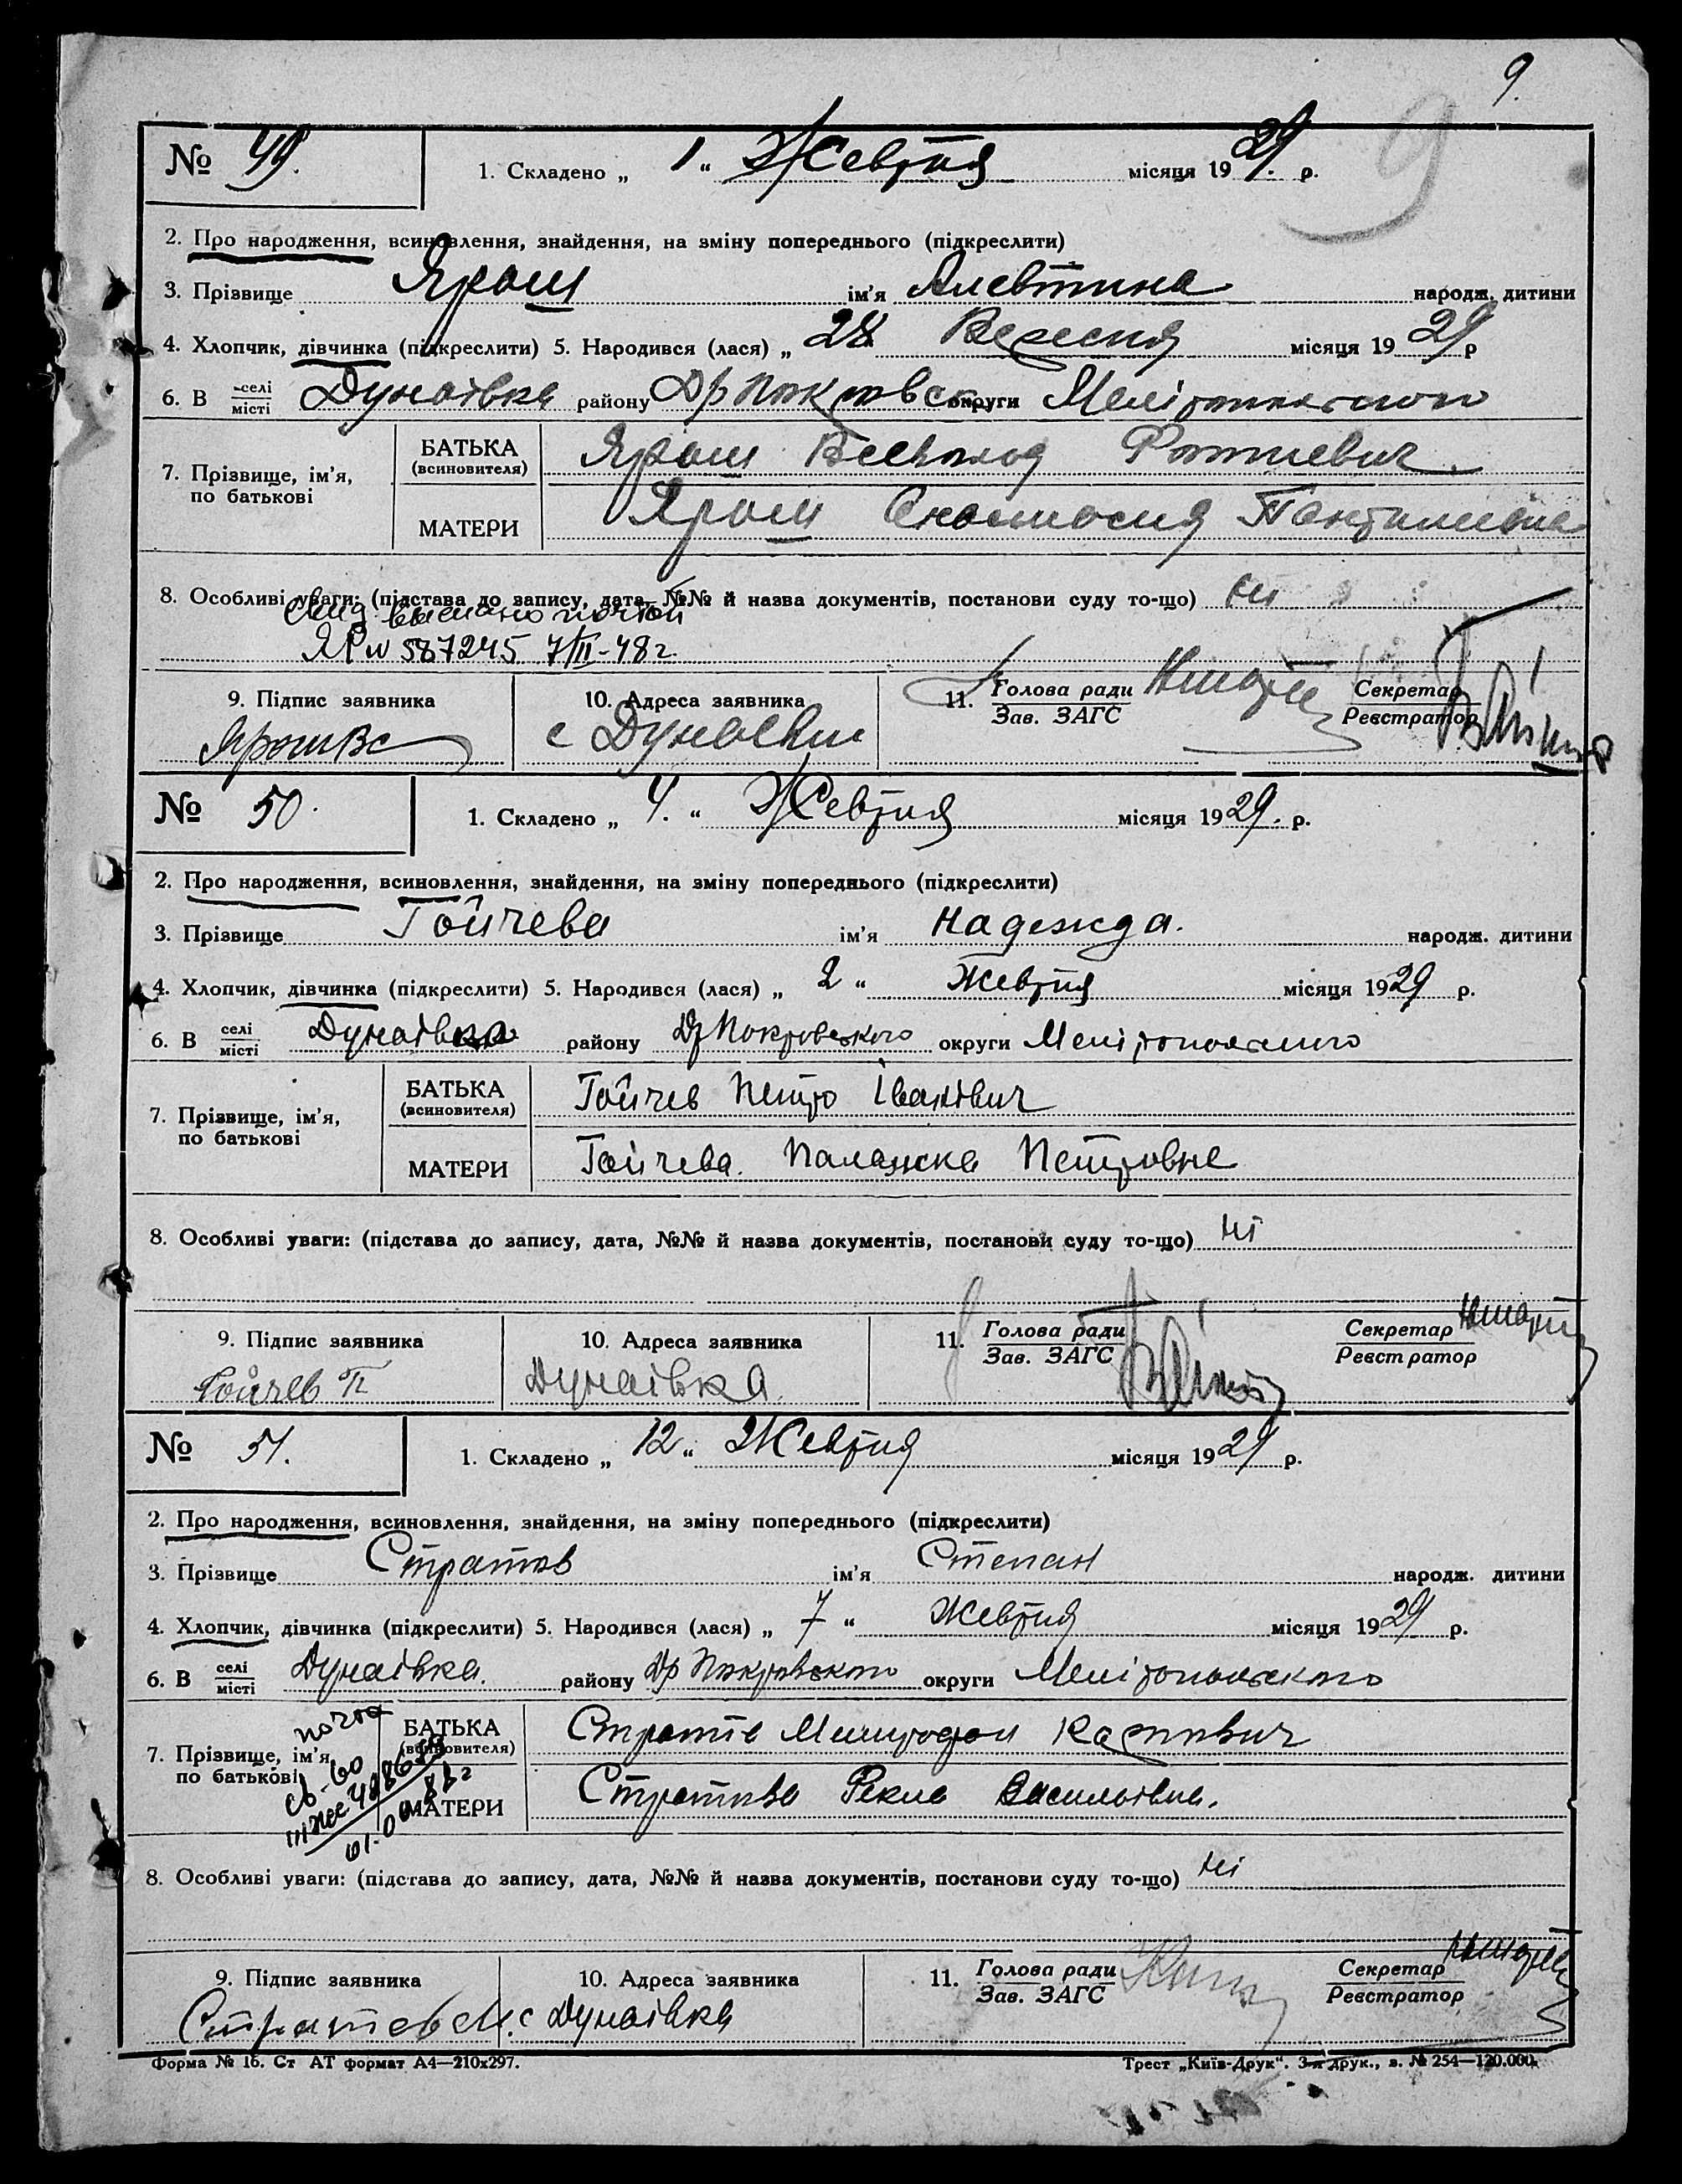 9.
9
№ 49. 1. Складено „ 1 “ Жевтня місяця 1929. р.
2. Про народження, всиновлення, знайдення, на зміну попереднього (підкреслити)
3. Прізвище Ярош ім'я Алевтина народж. дитини
4. Хлопчик, дівчинка (підкреслити) 5. Народився (лася) „ 28 Вересня місяця 1929 р
6. В селі місті Дунаівка району округи Мелітопольского
7. Прізвище, ім'я, по батькові
БАТЬКА (всиновителя) Ярош Всеволод
МАТЕРИ Ярош
8. Особливі уваги: (підстава до запису, дата, №№ й назва документів, постанови суду то-що) ні
свид выслано почтой
ЯР № 587245 7/II-48 г.
9. Підпис заявника 10. Адреса заявника 11. Голова ради Зав. ЗАГС Секретар Реєстратор
Ярош ВС с Дунаевки
№ 50. 1. Складено „ 4. “ Жевтня місяця 1929. р.
2. Про народження, всиновлення, знайдення, на зміну попереднього (підкреслити)
3. Прізвище Гойчева ім'я Надежда. народж. дитини
4. Хлопчик, дівчинка (підкреслити) 5. Народився (лася) „ 2 “ Жевтня місяця 1929 р.
6. В селі місті Дунаівка району Др Покровского округи Мелітопольского
7. Прізвище, ім'я, по батькові
БАТЬКА (всиновителя) Гойчев Петро Іванівич
МАТЕРИ Гойчева. Палажка Петровна
8. Особливі уваги: (підстава до запису, дата, №№ й назва документів, постанови суду то-що) ні
9. Підпис заявника 10. Адреса заявника 11. Голова ради Зав. ЗАГС Секретар Реєстратор
Гойчев П Дунаівка
№ 51. 1. Складено „ 12 “ Жевтня місяця 1929 р.
2. Про народження, всиновлення, знайдення, на зміну попереднього (підкреслити)
3. Прізвище Стратов ім'я Степан народж. дитини
4. Хлопчик, дівчинка (підкреслити) 5. Народився (лася) „ 7 “ Жевтня місяця 1929 р.
6. В селі місті Дунаівка. району Др Покровского округи Мелітопольского
7. Прізвище, ім'я, по батькові
почта
БАТЬКА (всиновителя)
МАТЕРИ Стратова Рекла Василівна.
8. Особливі уваги: (підстава до запису, дата, №№ й назва документів, постанови суду то-що) ні
9. Підпис заявника 10. Адреса заявника 11. Голова ради Зав. ЗАГС Секретар Реєстратор
Стратев М. с Дунаівка
Форма № 16. Ст АТ формат А4—210х297. Трест „Київ-Друк“. 3-я друк., з. № 254—120.000.